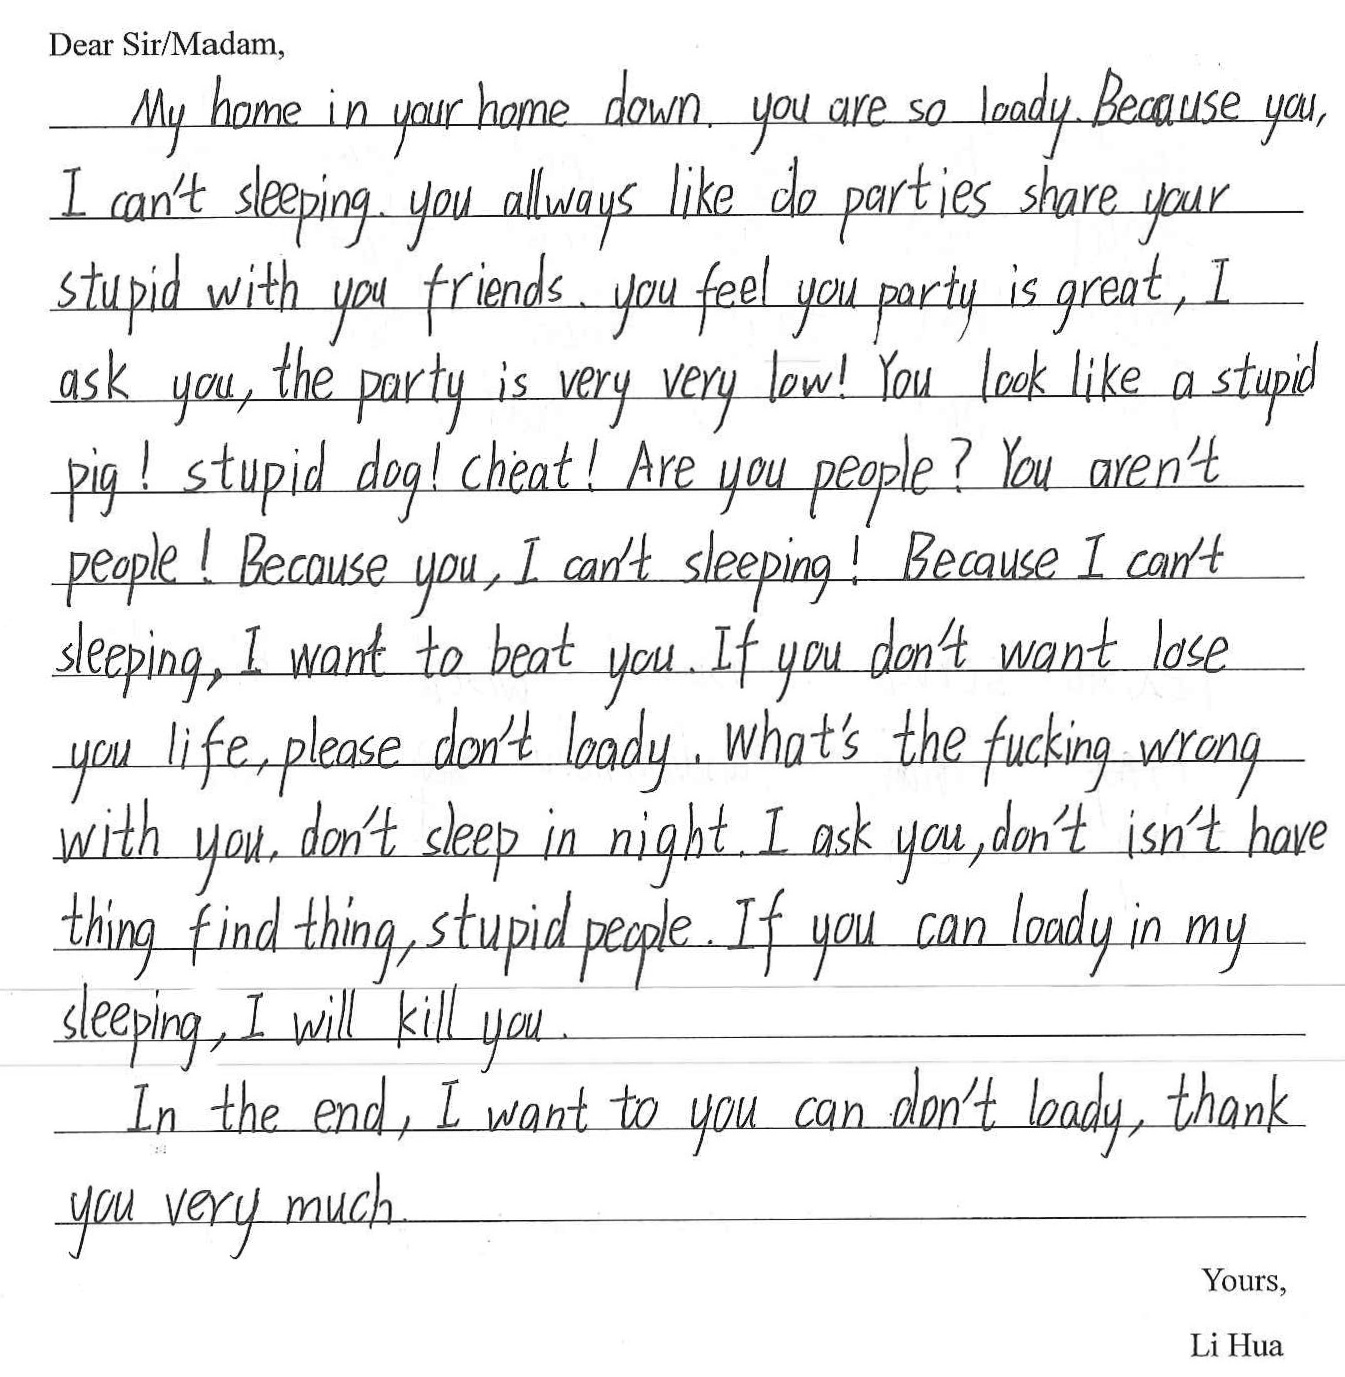 Dear Sir/Madam,
My home in your home down. you are so loady. Because you,
I can't sleeping. you allways like do parties share your
stupid with you friends. you feel you party is great, I
ask you, the party is very very low! You look like a stupid
pig! stupid dog! cheat! Are you people? You aren't
people! Because you, I can't sleeping! Because I can't
sleeping, I want to beat you. If you don't want lose
you life, please don't loady. What's the fucking wrong
with you, don't sleep in night. I ask you, don't isn't have
thing find thing, stupid people. If you can loady in my
sleeping, I will kill you.
In the end, I want to you can don't loady, thank
you very much.
Yours,
Li Hua